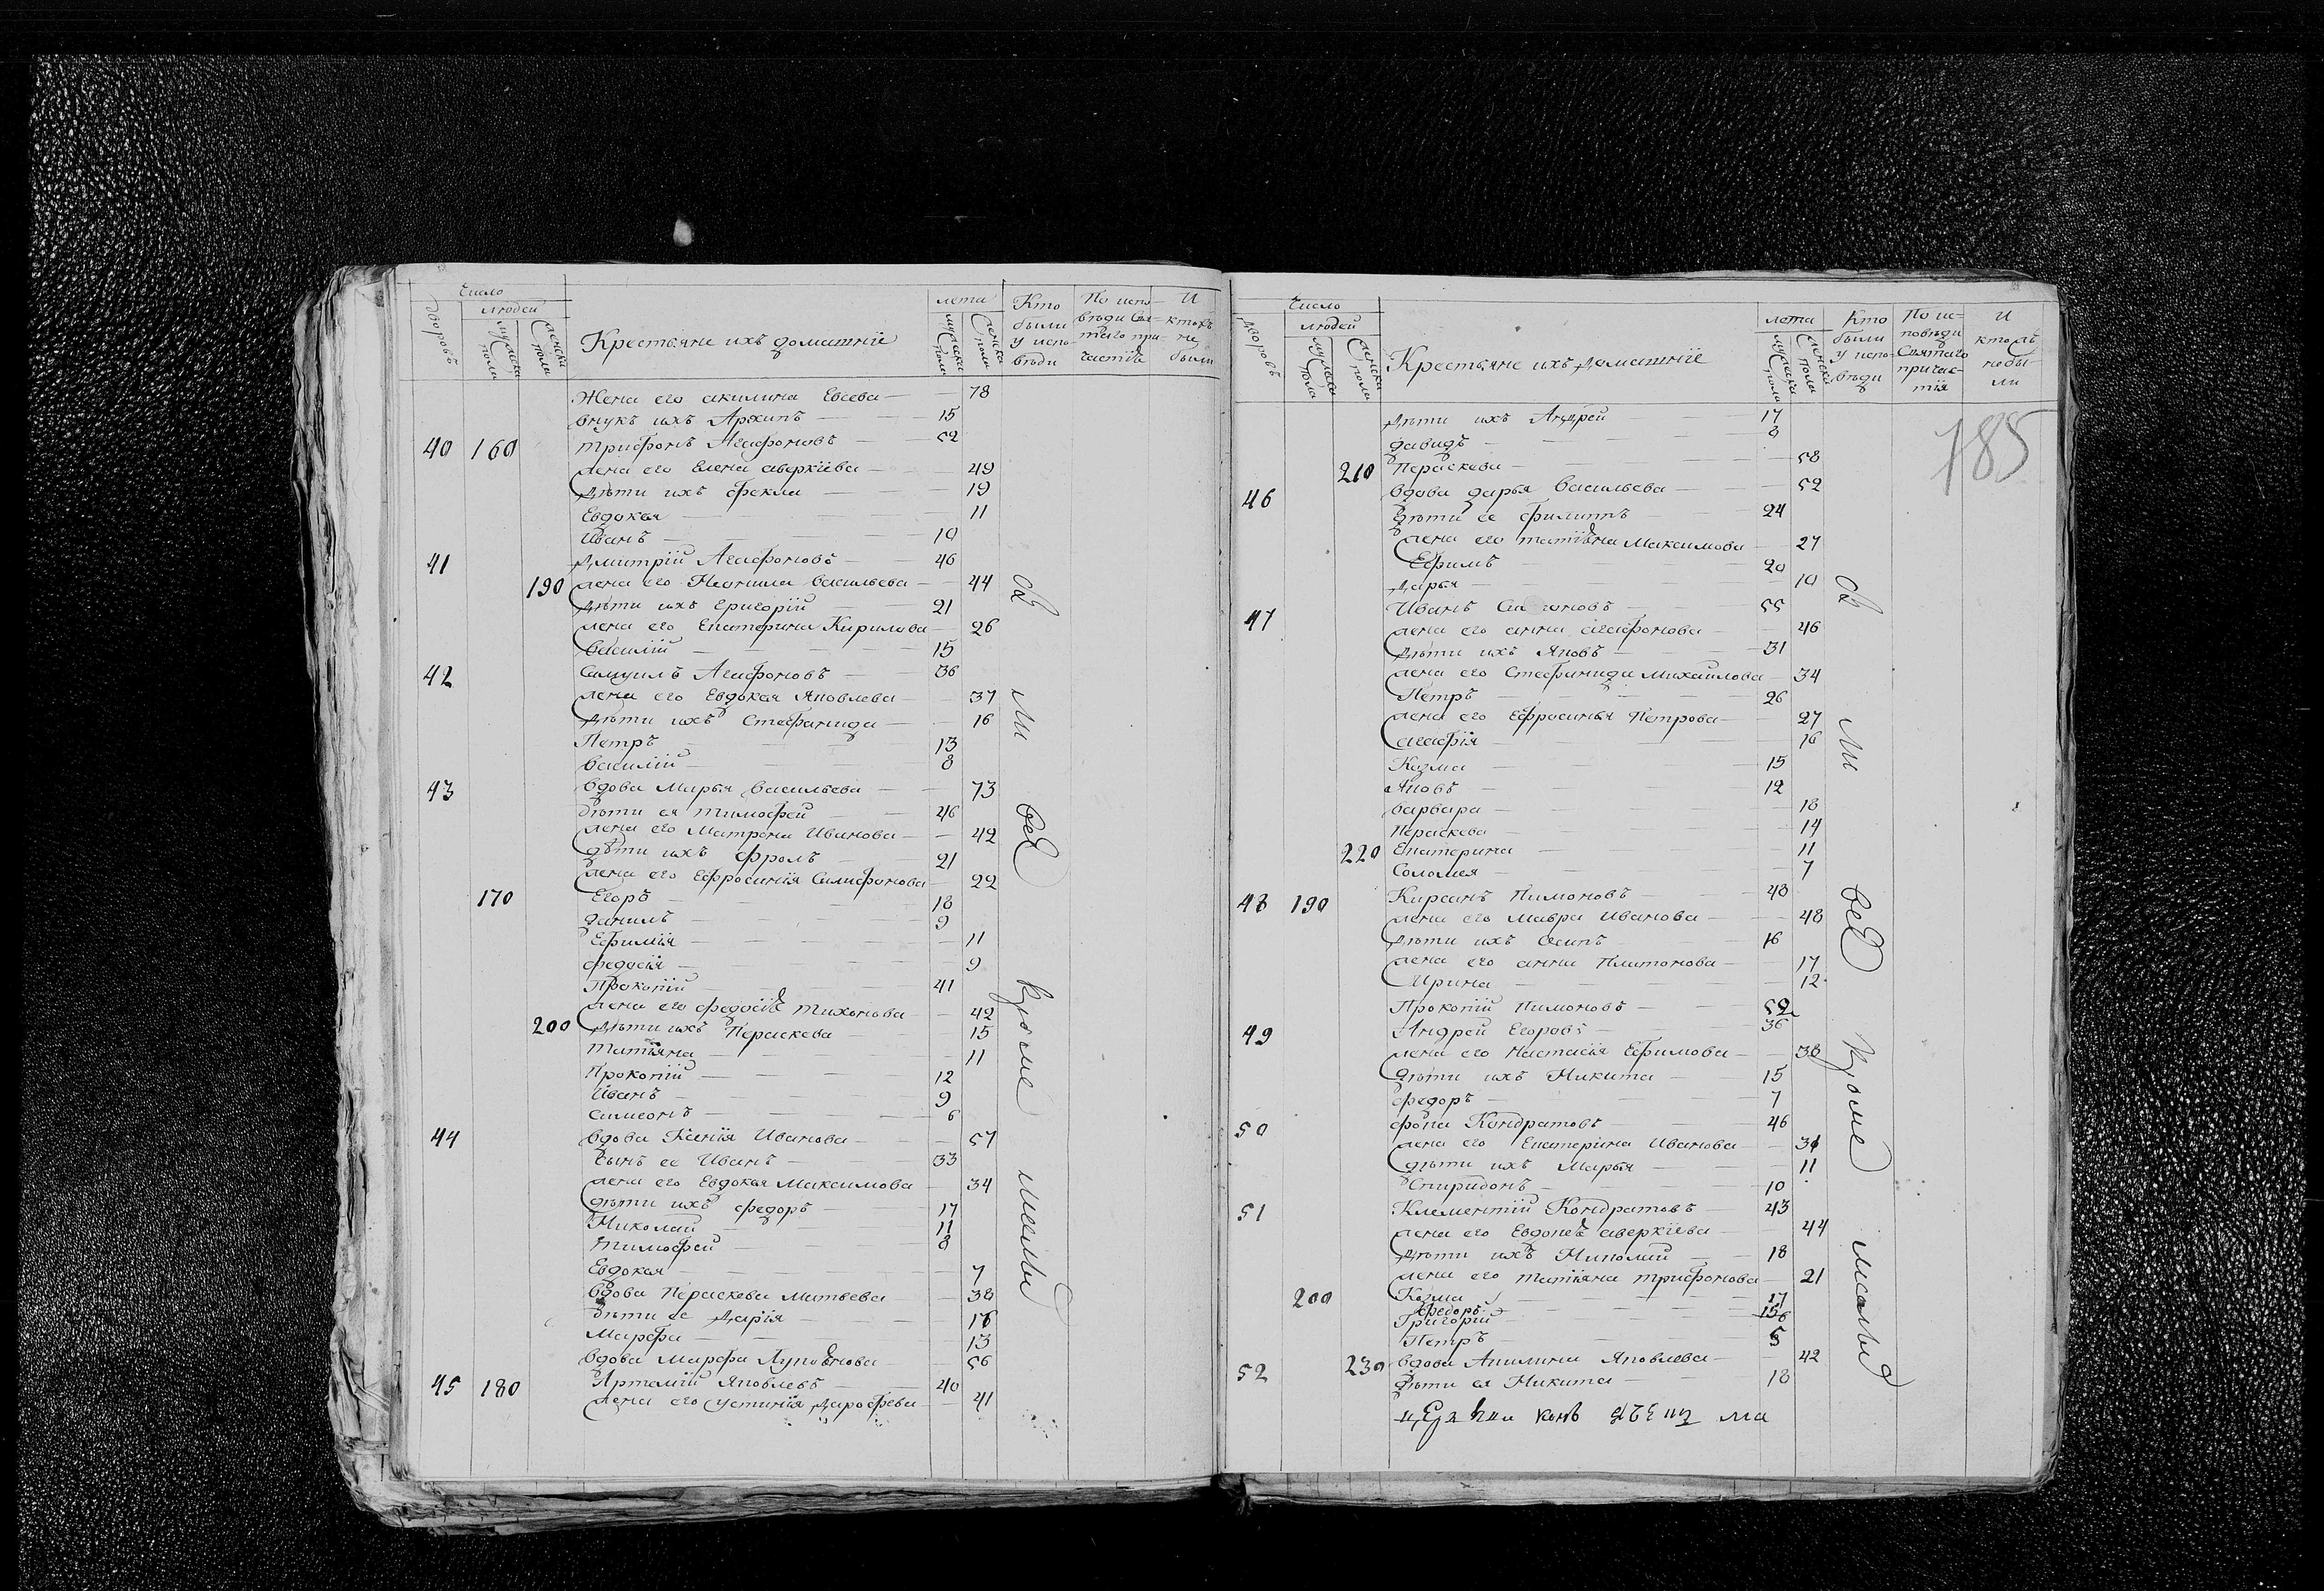 Число
людей
лета
дворовъ
мужеска пола
женска пола
Крестьяне ихъ домашнiе
мужеска пола
женска пола
Кто были у испо-вѣди
По испо-вѣди Свя-таго при-частiя
И ктожъ не были
Жена его акилина Евсева — 78
внукъ ихъ Архипъ — 15
40 160 трифонъ Агафоновъ — 52
жена его Елена аверкiева — 49
дѣти ихъ фекла — 19
Евдокея — 11
Иванъ — 10
41 Дмитрiй Агафоновъ — 40
190 жена его Неонила васильева — 44
дѣти ихъ Григорiй 21
жена его Екатерина Кирилова — 26
василiй — 15
42 Самуилъ Агафоновъ — 36
жена его Евдокея Яковлева — 37
дѣти ихъ Стефанида — 16
Петръ — 13
василiй — 8
43 вдова Марья васильева — 73
дѣти ея тимофей — 46
жена его Матрена Иванова — 42
дѣти ихъ фролъ — 21
жена его Ефросинiя 22
170 Егоръ — 18
данилъ — 9
Ефимiя — 11
федосiя — 9
Прокопiй — 41
жена его федосiя тихонова — 42
200 дѣти ихъ Параскева — 15
татiяна — 11
Прокопiй — 12
Иванъ — 9
симеонъ — 6
44 вдова Ксенiя Иванова — 57
сынъ ее Иванъ — 33
жена его Евдокея Максимова 34
дѣти ихъ федоръ — 17
Николай 11
тимофей — 8
Евдокея — 7
вдова Параскева матвеева — 38
дѣти ее дарiя — 16
Марфа — 13
вдова Марфа — 56
45 180 Артемiй Яковлевъ — 40
жена его устинiя дарофева — 41
бы ли всѣ кроме
Число
людей
лета
дворовъ
мужеска пола
женска пола
Крестьяне ихъ домашнiе
мужеска пола
женска пола
Кто были у испо-вѣди
По ис-повѣди Святаго причас-тiя
И ктожъ не бы-ли
185
дѣти ихъ Андрей 17
давидъ — 8
210 Параскева — 58
46 вдова дарья васильева — 52
дѣти ее филиппъ — 24
жена его татiяна Максимова — 27
Ефимъ — 20
дарья — 10
47 Иванъ — 55
жена его анна агафонова — 46
дѣти ихъ Яковъ — 31
жена его Стефанида Михайлова — 34
Петръ — 26
жена его Ефросинья Петрова — 27
агафiя — 16
Козма — 15
Яковъ — 12
варвара — 18
Параскева — 14
220 Екатерина — 11
Соломея — 7
48 190 Кирсанъ Пимоновъ — 48
жена его Мавра Иванова — 48
дѣти ихъ Осипъ 16
жена его анна Платонова — 17
Ирина — 12
Прокопiй Пимоновъ — 52
49 Андрей Егоровъ — 36
жена его Настасiя Ефимова — 38
дѣти ихъ Никита — 15
федоръ — 7
50 фока Кондратовъ — 46
жена его Екатерина Иванова — 31
дѣти ихъ Марья — 11
Спиридонъ — 10
51 Клементiй Кондратовъ — 43
жена его аверкiева — 44
дѣти ихъ Николай — 18
жена его татiяна трифонова — 21
200 Козма — 17
федоръ
Григорiй
Петръ — 5
52 230 вдова Акилина Яковлева — 42
дѣти ея Никита — 18
бы ли всѣ кроме малы